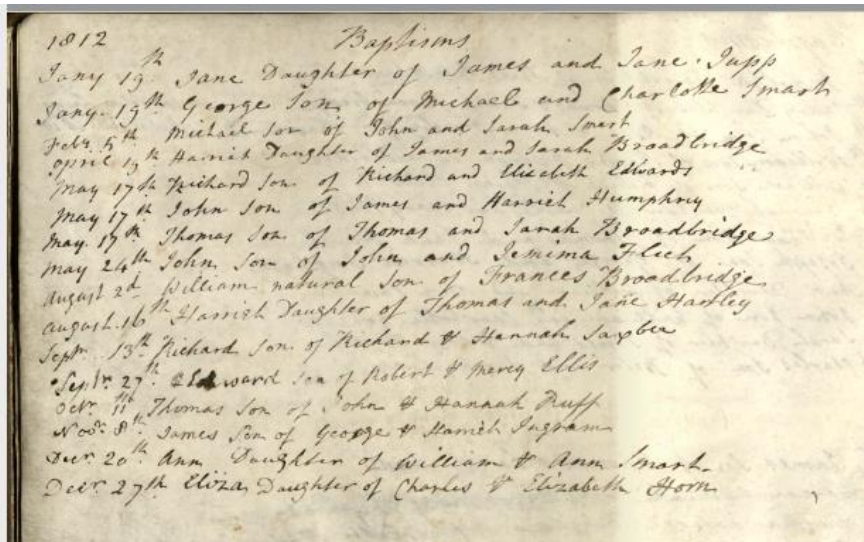 1812 Baptisms
Jany 19th Jane Daughter of James and Jane Jupp
Jany. 19th George Son of Michael and Charlotte Smart
Feby. 5th Michael Son of John and Sarah Smart
April 19th Harriet Daughter of James and Sarah Broadbridge
May 17th Richard Son of Richard and Elizabeth Edwards
May 17th John Son of James and Harriet Humphry
May. 17th Thomas Son of Thomas and Sarah Broadbridge
May 24th John Son of John and Jemima
August 2d William natural Son of Frances Broadbridge
August. 16th Harriet Daughter of Thomas and Jane Hartley
Septr. 13th. Richard Son of Richard & Hannah
Septr. 27th. Edward Son of Robert & Mercy Ellis
Octr. 11th Thomas Son of John & Hannah Ruff
Novr. 8th. James Son of George & Harriet Ingram
Decr. 20th. Ann Daughter of William & Ann Smart
Decr. 27th Eliza Daughter of Charles & Elizabeth Horn